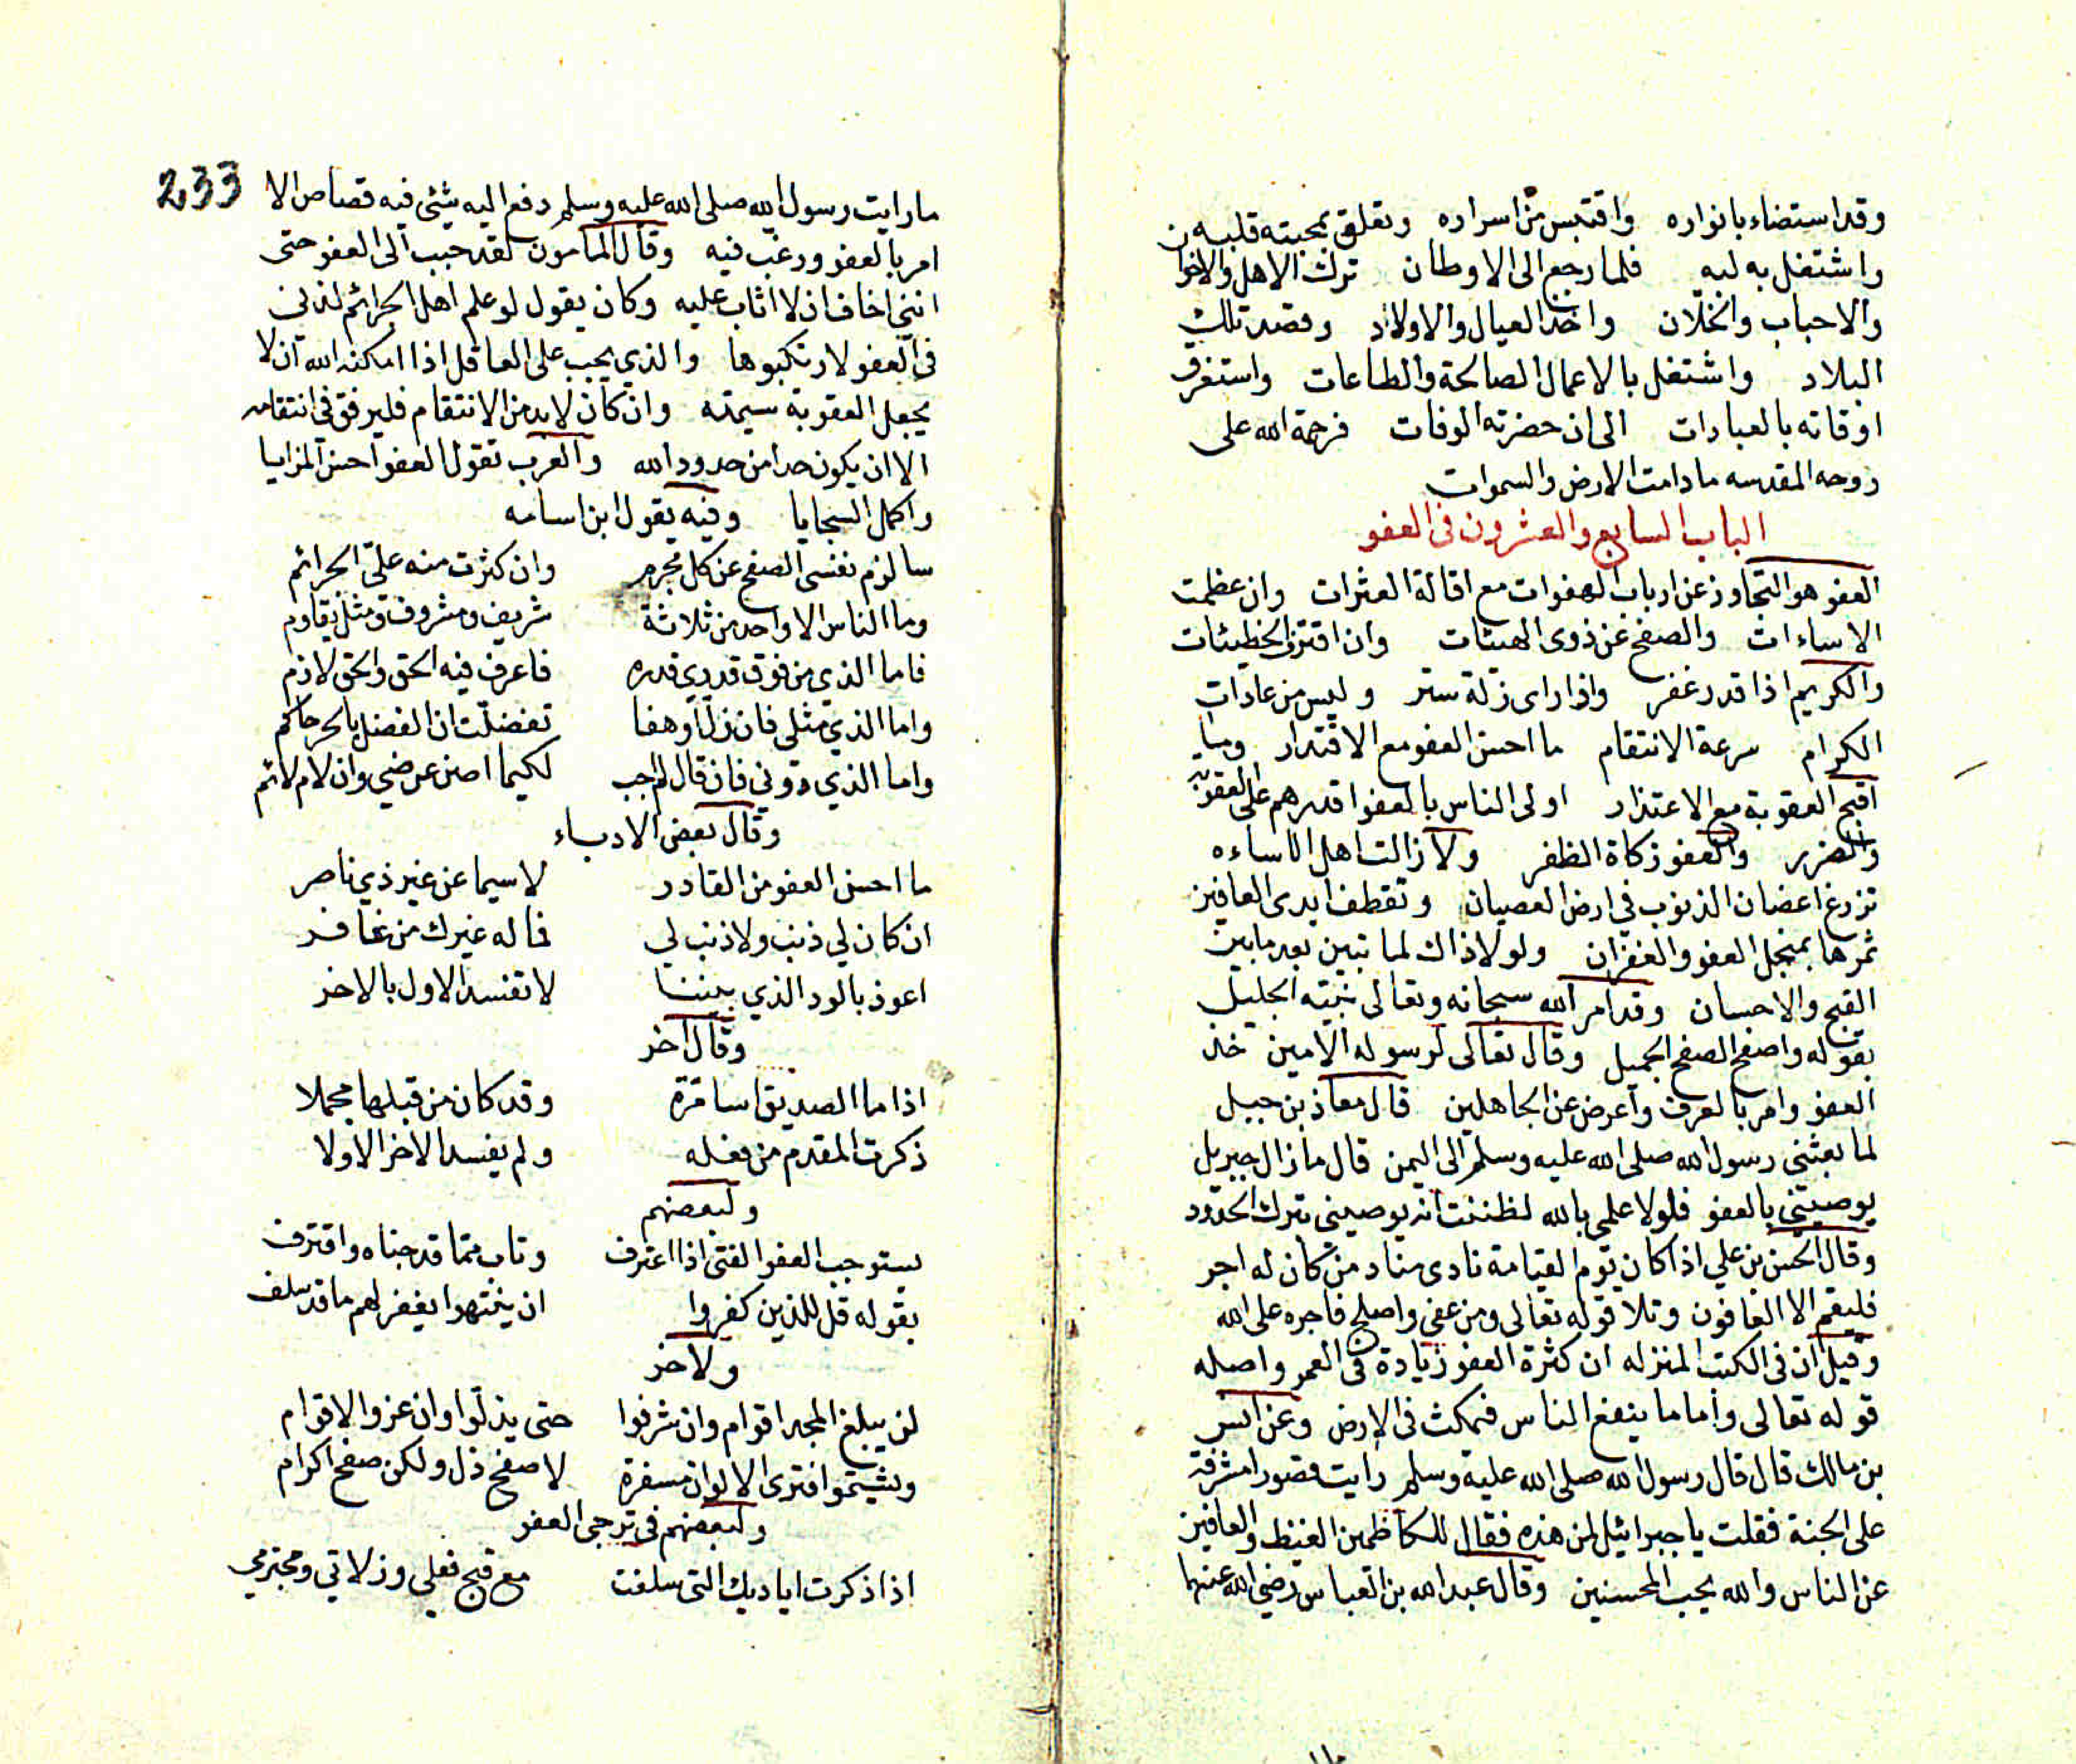 وقد استضاء بانواره واقتبس من اسراره وتعلق بمحبته قلبه
واشتغل به لبه فلما رجع الى الاوطان ترك الاهل والاخوان
والاحباب والخلان واخذ العيال والاولاد وقصد تلك
البلاد واشتغل بالاعمال الصالحة والطاعات واستغرق
اوقاته بالعبادات الى ان حضرته الوفات فرحمة الله على
روحه المقدسه ما دامت الارض والسموات
الباب السابع والعشرون في العفو
العفو هو التجاوز عن ارباب الهفوات مع اقالة العثرات وان عظمت
الاساءات والصفح عن ذوى الهيئات وان اقترفوا الخطيئات
والكريم اذا قدر غفر واذا راى زلة ستر وليس من عادات
الكرام سرعة الانتقام ما احسن العفو مع الاقتدار وما
اقبح العقوبة مع الاعتذار اولى الناس بالعفو اقدرهم على العقوبة
والضرر والعفو زكاة الظفر ولا زالت اهل الاساءه
تزرع اغصان الذنوب في ارض العصيان وتقطف ايدى العافين
ثمرها بمنجل العفو والغفران ولولا ذاك لما تبين بعد ما بين
القبح والاحسان وقد امر الله سبحانه وتعالى نبيه الجليل
بقوله واصفح الصفح الجميل وقال تعالى لرسوله الامين خذ
العفو وامر بالعرف واعرض عن الجاهلين قال معاذ بن جبيل
لما بعثنى رسول الله صلى الله عليه وسلم الى اليمن قال ما زال جبريل
يوصيني بالعفو فلولا علمي بالله لظننت انه يوصينى بترك الحدود
وقال الحسن بن علي اذا كان يوم القيامة نادى مناد من كان له اجر
فليقم الا العافون وتلا قوله تعالى ومن عفى واصلح فاجره على الله
وقيل ان في الكتب المنزله ان كثرة العفو زيادة في العمر واصله
قوله تعالى واما ما ينفع الناس فيمكث في الارض وعن انس
بن مالك قال قال رسول الله صلى الله عليه وسلم رايت قصورا مشرفة
على الجنة فقلت يا جبرائيل لمن هذه فقال للكاظمين الغيظ والعافين
عن الناس والله يحب المحسنين وقال عبد الله بن العباس رضي الله عنهما
233
ما رايت رسول الله صلى الله عليه وسلم دفع اليه شيئ فيه قصاص الا
امر بالعفو ورغب فيه وقال المامون لقد حبب الى العفو حتى
انني اخاف ان لا اثاب عليه وكان يقول لو علم اهل الجرائم لذتي
في العفو لارتكبوها والذي يجب على العاقل اذا امكنه الله ان لا
يجعل العقوبة سيمته وان كان لابد من الانتقام فليرفق في انتقامه
الا ان يكون حدا من حدود الله والعرب تقول العفو احسن المزايا
واكمل السجايا وفيه يقول ابن اسامه
سالزم نفسى الصفح عن كل مجرم وان كثرت منه علىّ الجرائم
وما الناس الا واحد من ثلاثة شريف ومشروف ومثل يقاوم
فاما الذي من فوق قدري قدره فاعرف فيه الحق والحق لازم
واما الذي مثلى فان زل او هفا تفضلت ان الفضل بالحر حاكم
واما الذي دوني فان قال لم اجب لكيما اصن عرضي وان لام لائم
وقال بعض الادباء
ما احسن العفو من القادر لاسيما عن غير ذي ناصر
ان كان لي ذنب ولا ذنب لي فما له غيرك من غافر
اعوذ بالود الذي بيننا لا تفسد الاول بالاخر
وقال اخر
اذا ما الصديق اسا مرة وقد كان من قبلها مجملا
ذكرت المقدم من فعله ولم يفسد الاخر الاولا
ولبعضهم
يستوجب العفو الفتى اذا اعترف وتاب مما قد جناه واقترف
بقوله قل للذين كفروا ان ينتهوا يغفر لهم ما قد سلف
ولاخر
لن يبلغ المجد اقوام وان شرفوا حتى يذلوا وان عزوا لاقوام
ويشتموا فترى الالوان مسفرة لا صفح ذل ولكن صفح اكرام
ولبعضهم في ترجى العفو
اذا ذكرت اياديك التى سلفت مع قبح فعلي وزلاتي ومجترمي